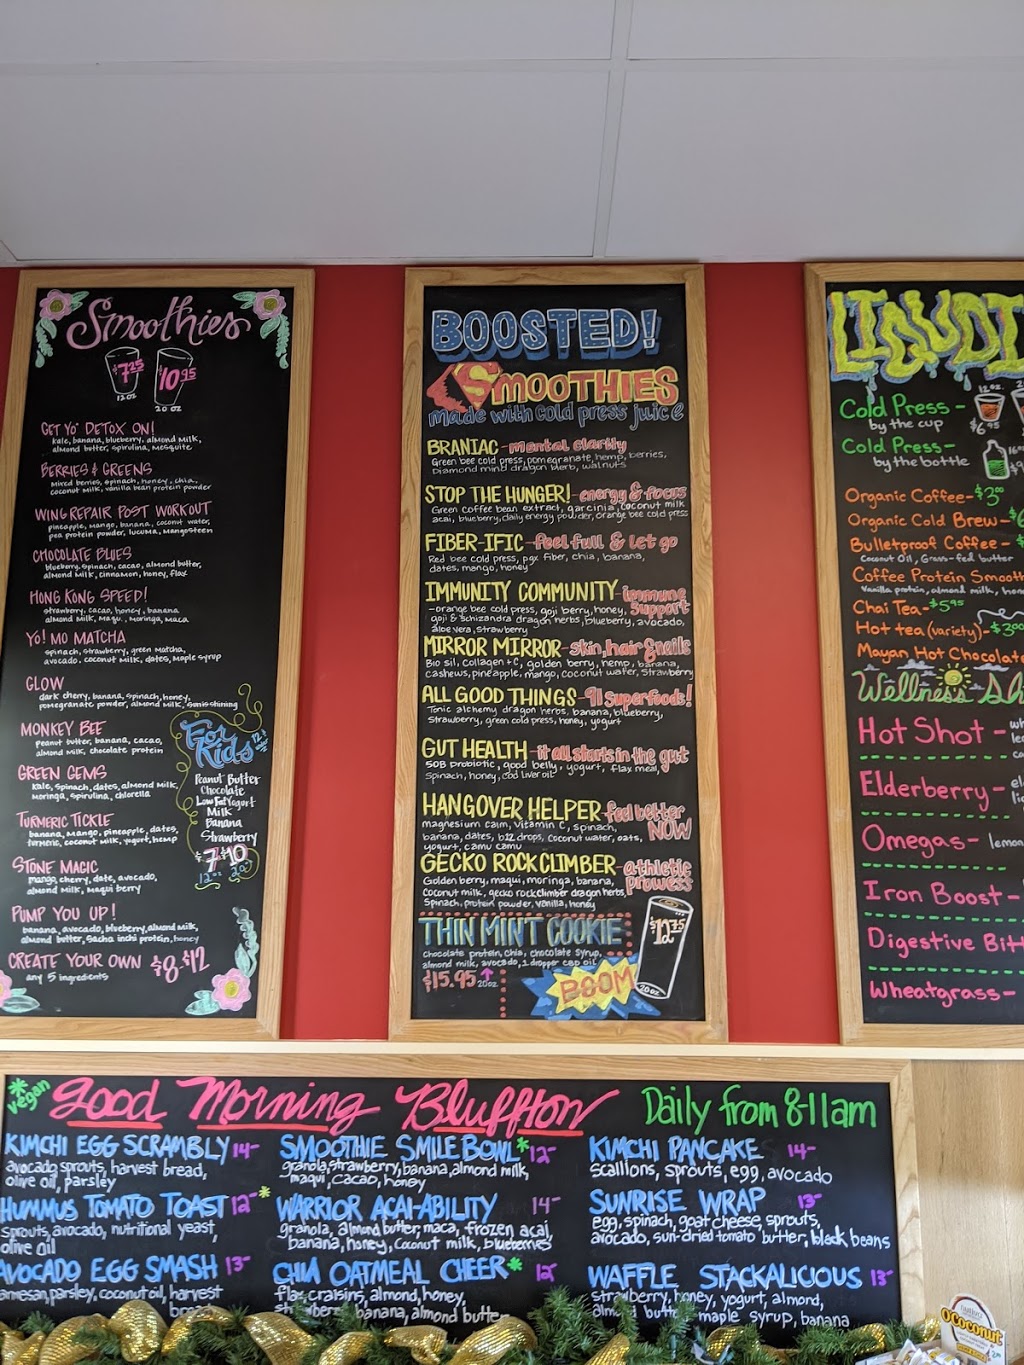 Smoothies
$7.25
12 oz
$10.95
20 oz
GET YO' DETOX ON!
kale, banana, blueberry, almond milk,
almond butter, spirulina, mesquite
BERRIES & GREENS
mixed berries, spinach, honey, chia,
coconut milk, vanilla bean protein powder
WING REPAIR POST WORKOUT
pineapple, mango, banana, coconut water,
pea protein powder, lucuma, mangosteen
CHOCOLATE BLUES
blueberry, spinach, cacao, almond butter,
almond milk, cinnamon, honey, flax
HONG KONG SPEED!
strawberry, cacao, honey, banana
almond milk, Maqui, moringa, maca
YO! MO MATCHA
spinach, strawberry, green matcha,
avocado, coconut milk, dates, maple syrup
GLOW
dark cherry, banana, spinach, honey,
pomegranate powder, almond milk,
MONKEY BEE
peanut butter, banana, cacao,
almond milk, chocolate protein
GREEN GEMS
kale, spinach, dates, almond milk,
moringa, spirulina, chlorella
TURMERIC TICKLE
banana, mango, pineapple, dates,
turmeric, coconut milk, yogurt, hemp
STONE MAGIC
mango, cherry, date, avocado,
almond milk, maqui berry
PUMP YOU UP!
banana, avocado, blueberry, almond milk,
almond butter, sacha inchi protein, honey
CREATE YOUR OWN $8 $12
any 5 ingredients
For Kids
Peanut Butter
Chocolate
Low Fat Yogurt
Milk
Banana
Strawberry
$7 $10
12 oz 20 oz
BOOSTED!
SMOOTHIES
made with cold press juice
BRANIAC - mental clarity
Green bee cold press, pomegranate, hemp, berries,
Diamond mind dragon blerb, walnuts
STOP THE HUNGER! - energy & focus
Green coffee bean extract, garcinia, coconut milk
acai, blueberry, daily energy powder, orange bee cold press
FIBER-IFIC - feel full & let go
Red bee cold press, pgx fiber, chia, banana,
dates, mango, honey
IMMUNITY COMMUNITY - immune support
- orange bee cold press, goji berry, honey,
goji & schizandra dragon herbs, blueberry, avocado,
aloe vera, strawberry
MIRROR MIRROR - skin, hair & nails
Bio sil, collagen + C, golden berry, hemp, banana,
cashews, pineapple, mango, coconut water, strawberry
ALL GOOD THINGS - 91 Superfoods!
Tonic alchemy dragon herbs, banana, blueberry,
Strawberry, green cold press, honey, yogurt
GUT HEALTH - it all starts in the gut
50B probiotic, good belly, yogurt, flax meal,
Spinach, honey, cod liver oil
HANGOVER HELPER - feel better NOW
magnesium calm, vitamin C, spinach,
banana, dates, b12 drops, coconut water, oats,
yogurt, camu camu
GECKO ROCK CLIMBER - athletic prowess
Golden berry, maqui, moringa, banana,
coconut milk, gecko rockclimber dragon herbs,
Spinach, protein powder, vanilla, honey
THIN MINT COOKIE
Chocolate protein, chia, chocolate syrup,
almond milk, avocado, 1 dropper CBD oil
$15.95 20oz
BOOM
$12.75
20oz
LIQUI
Cold Press -
by the cup
12 oz.
$6.95
Cold Press -
by the bottle
16oz
Organic Coffee - $3.00
Organic Cold Brew -
Bulletproof Coffee -
Coconut Oil, Grass-fed butter
Coffee Protein Smooth
Vanilla protein, almond milk, hon
Chai Tea - $5.95
Hot tea (variety) - $3.00
Mayan Hot Chocolate
Wellness Sh
Hot Shot -
Elderberry -
Omegas - lemon
Iron Boost -
Digestive Bitt
Wheatgrass -
*vegan
Good Morning Bluffton Daily from 8-11am
KIMCHI EGG SCRAMBLY 14-
avocado, sprouts, harvest bread,
olive oil, parsley
HUMMUS TOMATO TOAST 12-*
sprouts, avocado, nutritional yeast,
olive oil
AVOCADO EGG SMASH 13-
armesan, parsley, coconut oil, harvest
bread
SMOOTHIE SMILE BOWL* 12-
granola, strawberry, banana, almond milk,
maqui, cacao, honey
WARRIOR ACAI-ABILITY 14-
granola, almond butter, maca, frozen acai,
banana, honey, coconut milk, blueberries
CHIA OATMEAL CHEER* 12
flax, craisins, almond, honey,
strawberry, banana, almond butter
KIMCHI PANCAKE 14-
scallions, sprouts, egg, avocado
SUNRISE WRAP 13-
egg, spinach, goat cheese, sprouts,
avocado, sun-dried tomato butter, black beans
WAFFLE STACKALICIOUS 13-
strawberry, honey, yogurt, almond,
almond butter, maple syrup, banana
O'COCONUT